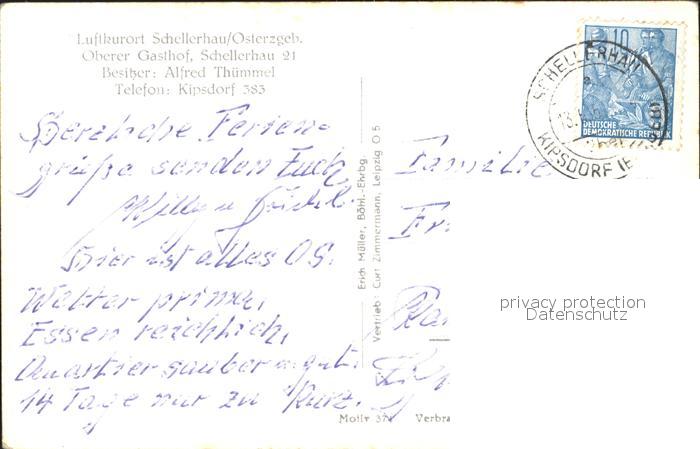 Luftkurort Schellerhau/Osterzgeb.
Oberer Gasthof, Schellerhau 21
Besitzer: Alfred Thümmel
Telefon: Kipsdorf 383
Herzliche Ferien-
grüße senden Euch
Willy u
Hier ist alles OS.
Wetter prima,
Essen reichlich,
Quartier sauber u. gut.
14 Tage nur zu kurz.
Erich Müller, Böhl.-Ehrbg.
Vertrieb: Curt Zimmermann, Leipzig O 5
Motiv 37
Verbra
10
DEUTSCHE
DEMOKRATISCHE REPUBLIK
SCHELLERHAU
KIPSDORF (E
13.
Familie
Fr
privacy protection
Datenschutz